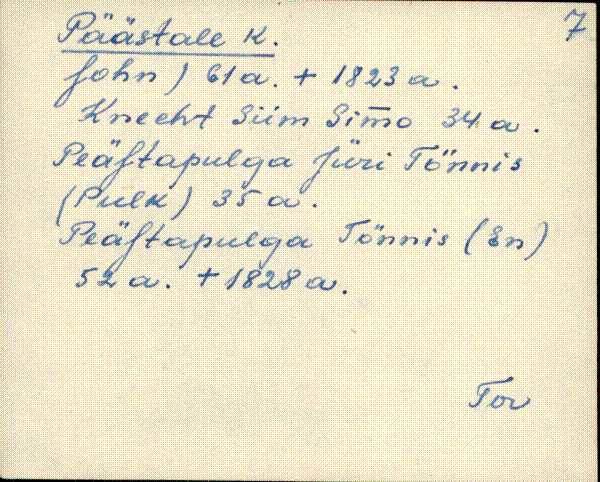 7
Päästale K.
John) 61 a. + 1823 a.
Knecht Siim Sim̅o 34 a.
Peäſtapulga Jüri Tönnis
(Pulk) 35 a.
Peäſtapulga Tönnis (En)
52 a. + 1828 a.
Tor